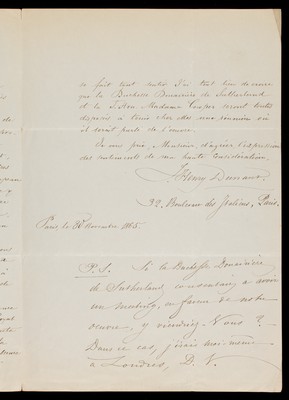 en fait tout autre. J'ai tout lieu de croire
que la Duchesse Douairière de Sutherland
et la Madame seront toutes
disposées à tenir chez elles une réunion où
il serait parlé de l'œuvre.
Je vous prie, Monsieur, d'agréer l'expression
des sentiments de ma haute considération.
J Henry Dunant
32. Boulevard des Italiens, Paris.
Paris, le Novembre 1865.
P. S. Si la Duchesse Douairière
de Sutherland consentait à avoir
un meeting, en faveur de notre
œuvre, y viendriez-Vous ?
Dans ce cas, j'irais moi-même
à Londres, D. V.